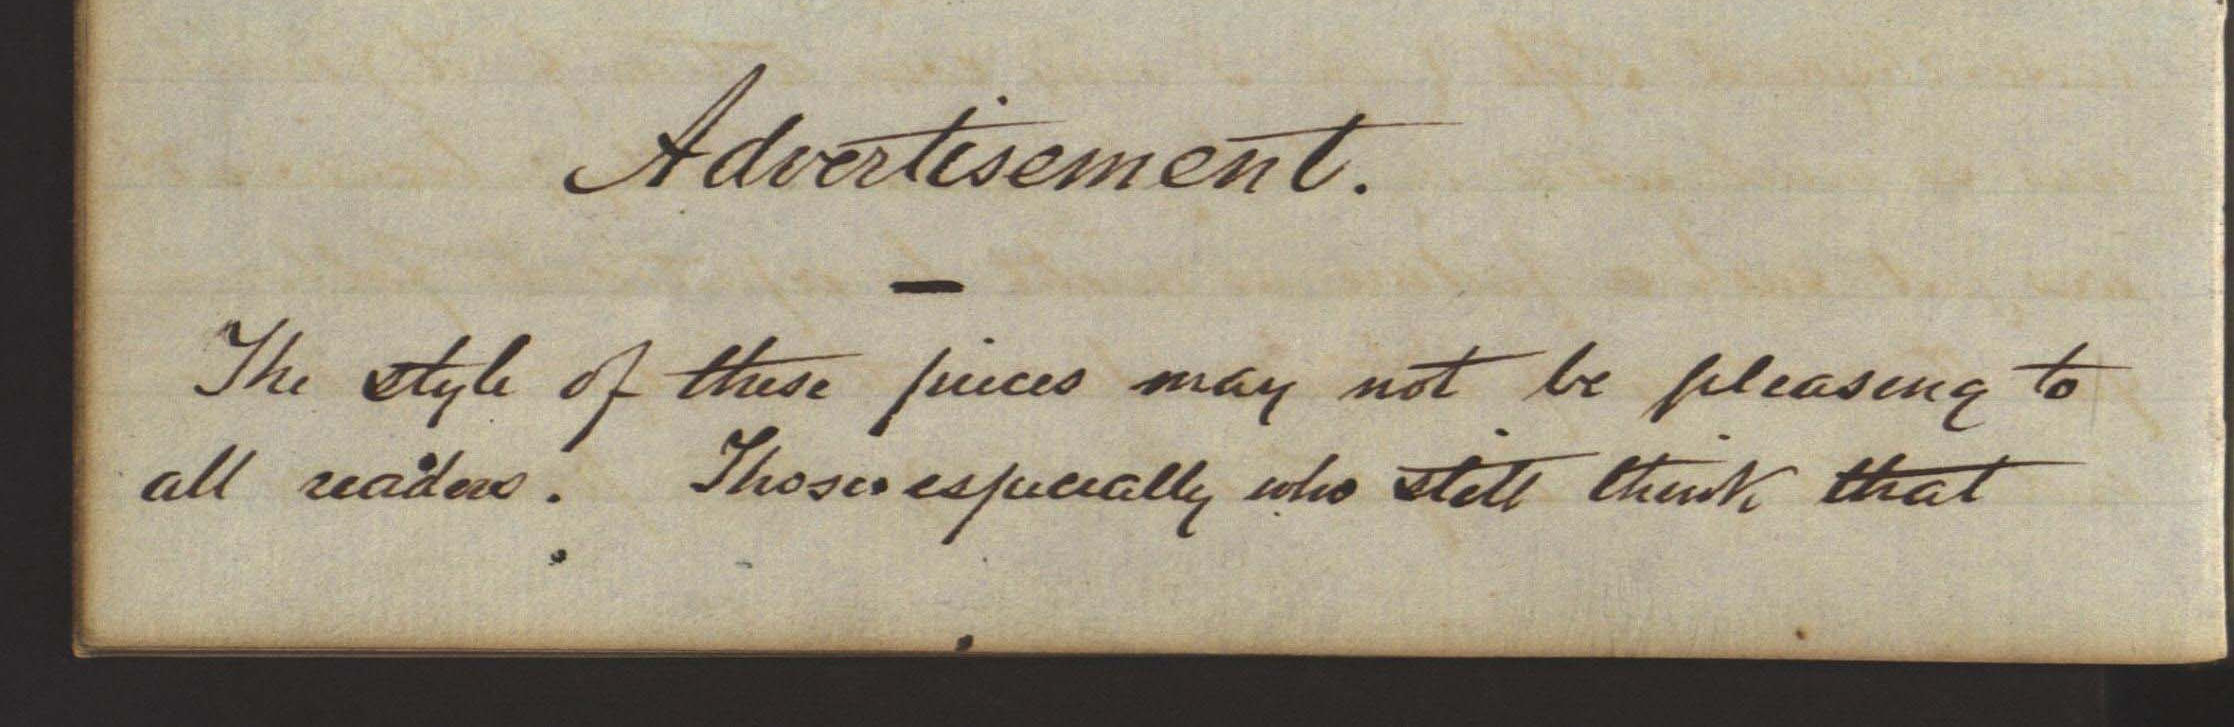 Advertisement.
—
The style of these pieces may not be pleasing to
all readers. Those especially who still think that